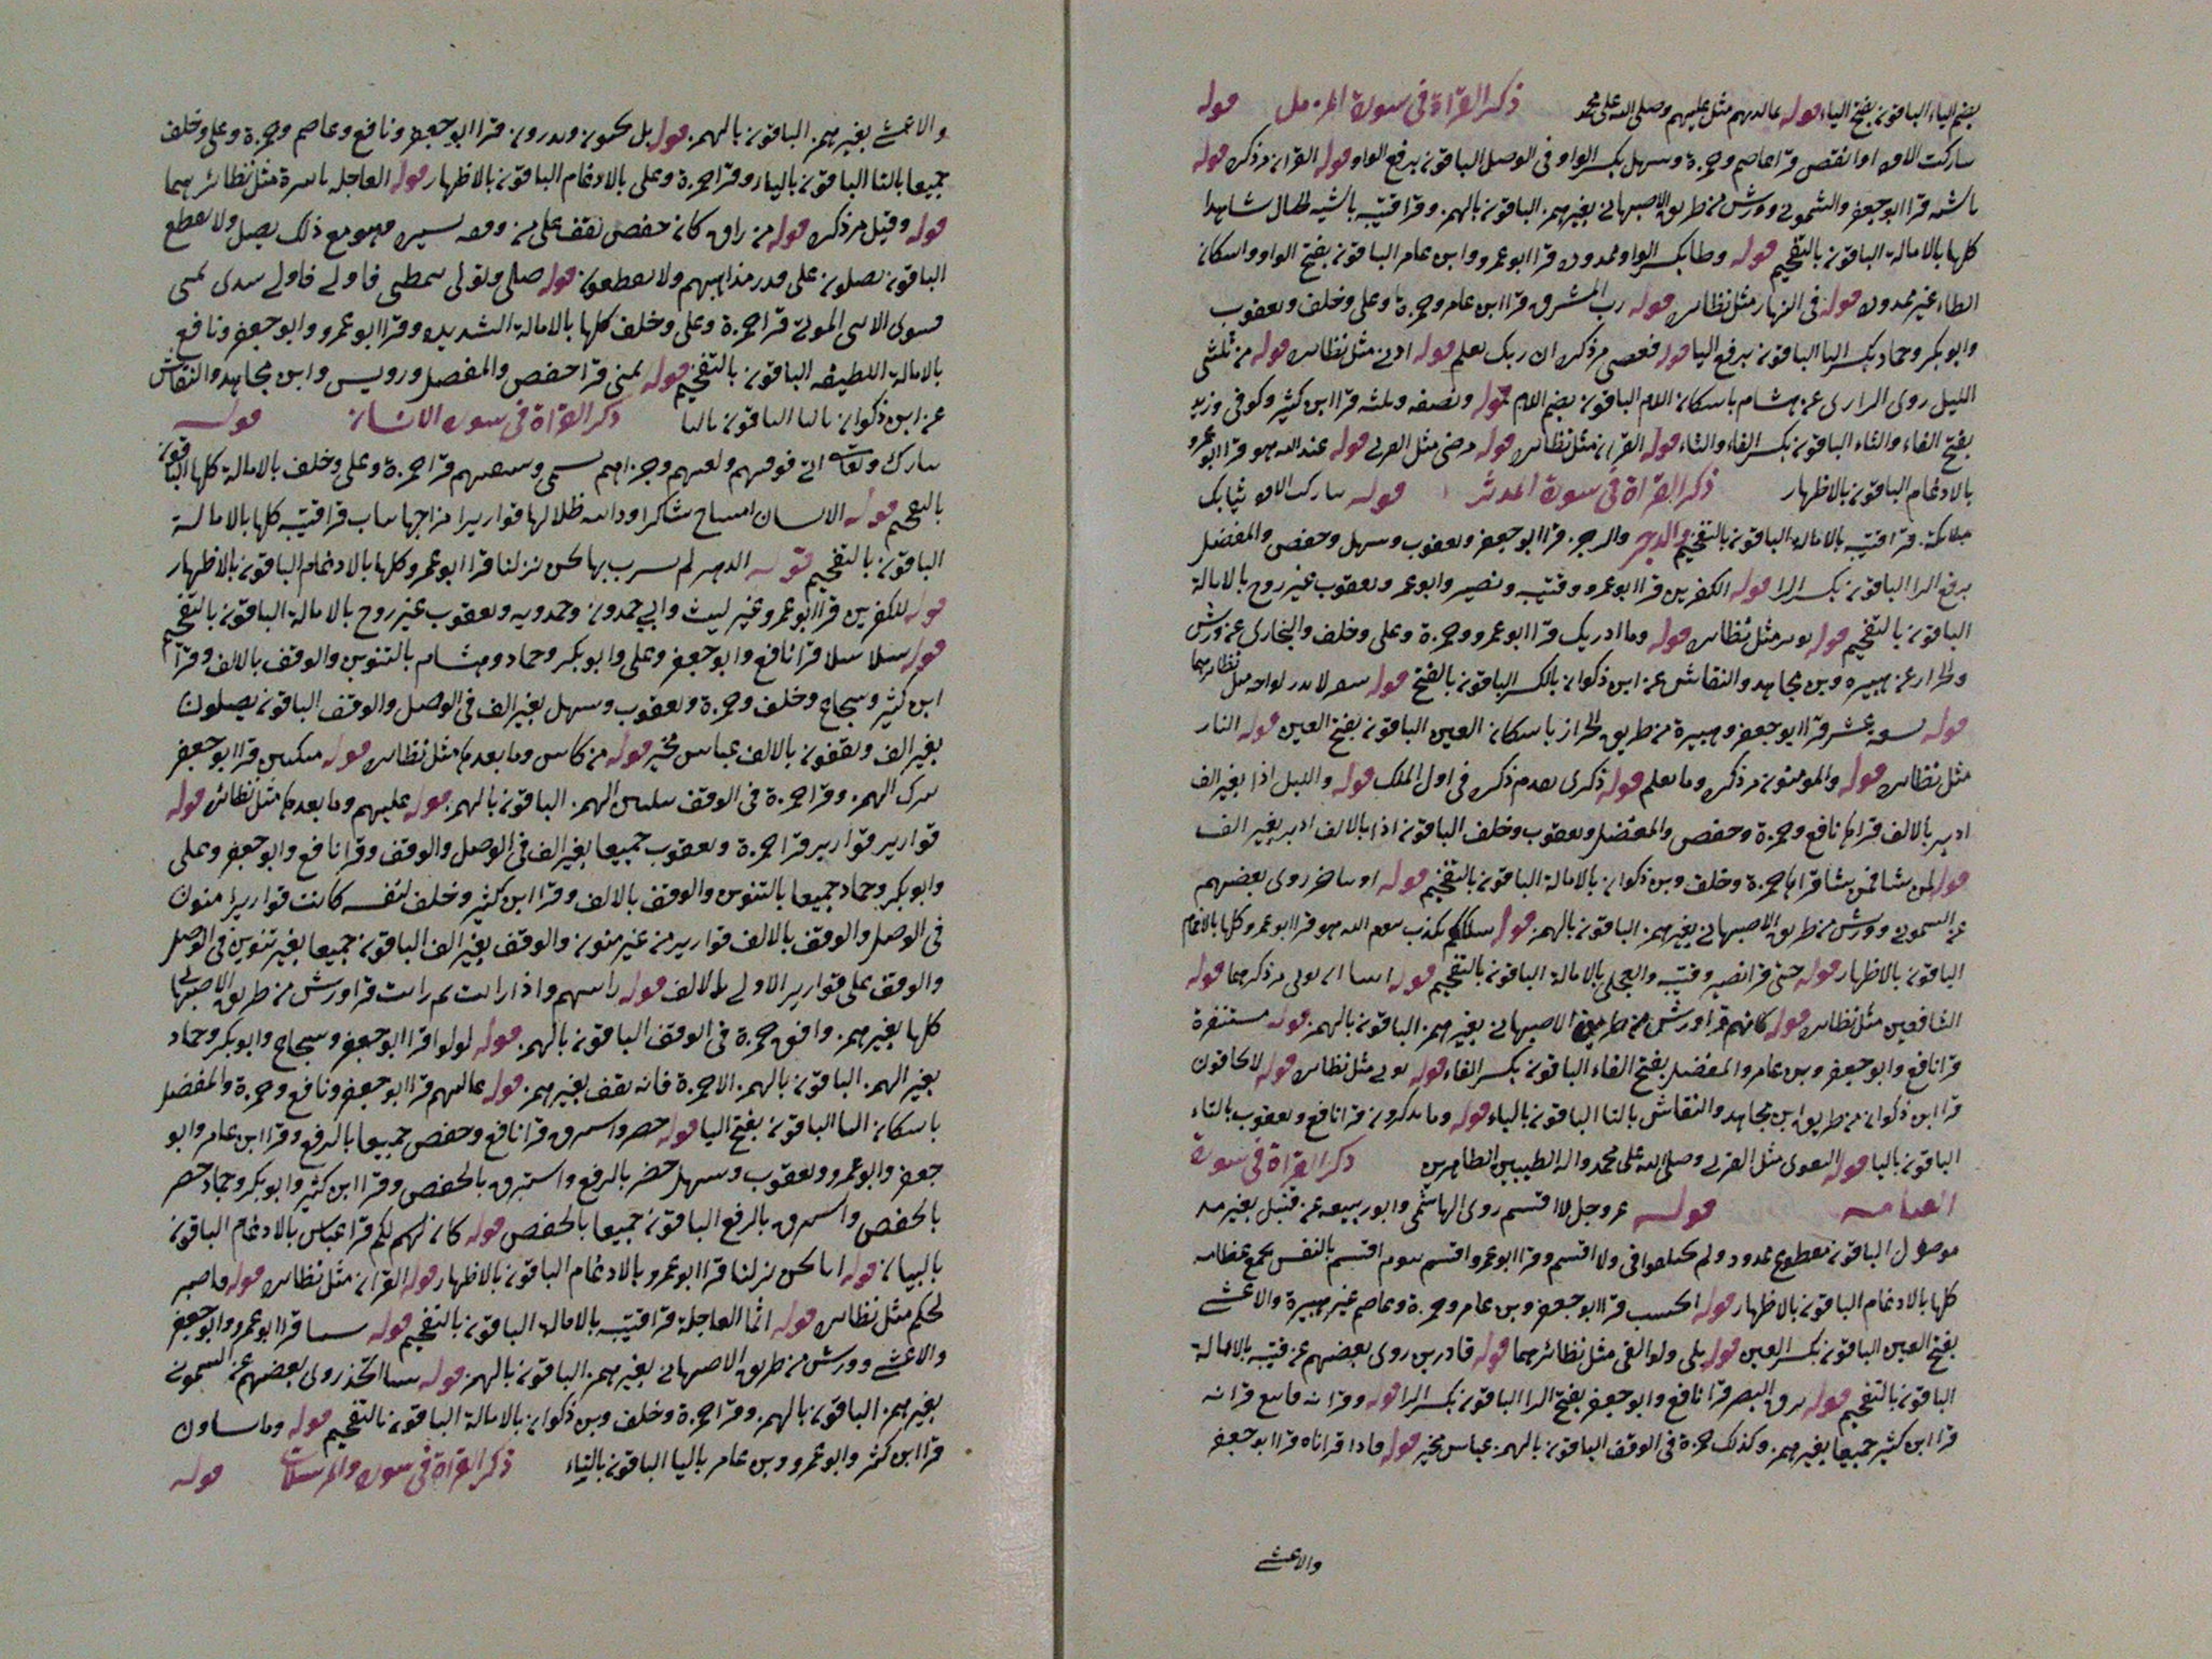 بضم الياء الباقون بفتح الياء قوله بما لديهم مثل عليهم وصلى الله على محمد ذكر القراءة في سورة المزمل قوله
او انقص قرا عاصم وحمزة وسهل بكسر الواو في الوصل الباقون برفع الواو قوله القران مر ذكره قوله
ناشئه قرا ابو جعفر والشموني وورش من طريق الاصبهاني بغير همز الباقون بالهمز وقرا قتيبه
كلها بالامالة الباقون بالتفخيم قوله وطا بكسر الواو ممدوده قرا ابو عمرو وابن عامر الباقون بفتح الواو واسكان
الطاء غير ممدوده قوله في النهار مثل نظائره قوله رب المشرق قرا ابن عامر وحمزة وعلى وخلف ويعقوب
وابو بكر وحماد بكسر البا الباقون برفع البا قوله فعصى مر ذكره ان ربك يعلم قوله ادنى مثل نظائره قوله من ثلثى
الليل روى الرازى عن هشام باسكان اللام الباقون بضم اللام قوله ونصفه وثلثه قرا ابن كثير وكوفى وزيد
بفتح الفاء والثاء الباقون بكسر الفاء والثاء قوله القران مثل نظائره قوله مرضى مثل القربى قوله عند الله هو قرا ابو عمرو
بالادغام الباقون بالاظهار ذكر القراة في سورة المدثر قوله ثيابك
قرا قتيبه بالاماله الباقون بالتفخيم والرجز والرجز قرا ابو جعفر ويعقوب وسهل وحفص والمفضل
برفع الرا الباقون بكسر الرا قوله الكفرين قرا ابو عمرو وقتيبه ونصير وابو عمر ويعقوب غير روح بالامالة
الباقون بالتفخيم قوله مثل نظائره قوله وما ادريك قرا ابو عمرو وحمزة وعلى وخلف والبخارى عن ورش
والخراز عن هبيره وبن مجاهد والنقاش عن ابن ذكوان بالكسر الباقون بالفتح قوله سقر لا تذر لواحه مثل نظائرهما
قوله تسعه عشر قرا ابو جعفر وهبيرة من طريق الخراز باسكان العين الباقون بفتح العين قوله النار
مثل نظائره قوله والمومنون مر ذكره وما يعلم قوله ذكرى تقدم ذكره في اول الملك قوله والليل اذا بغير الف
ادبر بالالف قراها نافع وحمزة وحفص والمفضل ويعقوب وخلف الباقون اذا بالالف ادبر بغير الف
قوله لمن شا فمن شا قراها حمزة وخلف وبن ذكوان بالامالة الباقون بالتفخيم قوله او يتاخر روى بعضهم
عن الشموني وورش من طريق الاصبهاني بغير همز الباقون بالهمز قوله سلككم نكذب بيوم الله هو قرا ابو عمرو كلها بالادغام
الباقون بالاظهار قوله حتى قرا نصير وقتيبه والعجلى بالامالة الباقون بالتفخيم قوله اتينا ان يوتى مر ذكرهما قوله
الشافعين مثل نظائره قوله كانهم قرا ورش من طريق الاصبهاني بغير همز الباقون بالهمز قوله مستنفرة
قرا نافع وابو جعفر وبن عامر والمفضل بفتح الفاء الباقون بكسر الفاء قوله يوتى مثل نظائره قوله لا تخافون
قرا ابن ذكوان من طريق ابن مجاهد والنقاش بالتا الباقون بالياء قوله وما يذكرون قرا نافع ويعقوب بالتاء
الباقون باليا قوله التقوى مثل القربى وصلى الله على محمد واله الطيبين الطاهرين ذكر القراة في سورة
القيامه قوله عز وجل لا اقسم روى الهاشمى وابو ربيعه عن قنبل بغير مد
موصول الباقون مقطوع ممدود ولم يختلفوا في ولا اقسم وقرا ابو عمرو اقسم بيوم اقسم بالنفس نجمع عظامه
كلها بالادغام الباقون بالاظهار قوله ايحسب قرا ابو جعفر وبن عامر وحمزة وعاصم غير هبيرة والاعشى
بفتح السين الباقون بكسر السين قوله بلى ولو القى مثل نظائرهما قوله قادرين روى بعضهم عن قتيبه بالامالة
الباقون بالتفخيم قوله برق البصر قرا نافع وابو جعفر بفتح الرا الباقون بكسر الرا قوله وقرانه فاتبع قرانه
قرا ابن كثير جميعا بغير همز وكذلك حمزة في الوقف الباقون بالهمز عباس مخير قوله فاذا قراناه قرا ابو جعفر
والاعشى
والاعشى بغير همز الباقون بالهمز قوله بل تحبون وتذرون قرا ابو جعفر ونافع وعاصم وحمزة وعلى وخلف
جميعا بالتا الباقون بالياء وقرا حمزة وعلى بالادغام الباقون بالاظهار قوله العاجله ناضرة مثل نظائرهما
قوله وقيل مر ذكره قوله من راق كان حفص يقف على من وقفه يسيره وهو مع ذلك يصل ولا يقطع
الباقون يصلون على قدر مذاهبهم ولا يقطعون قوله صلى وتولى يتمطى فاولى فاولى سدى تمنى
فسوى الانثى الموتى قرا حمزة وعلى وخلف كلها بالامالة الشديده وقرا ابو عمرو وابو جعفر ونافع
بالامالة اللطيفه الباقون بالتفخيم قوله يمنى قرا حفص والمفضل ورويس وابن مجاهد والنقاش
عن ابن ذكوان باليا الباقون بالتا ذكر القراة في سورة الانسان قوله
فوقهم ولقيهم وجزاهم تسمى وسقيهم قرا حمزة وعلى وخلف بالامالة كلها الباقون
بالتفخيم قوله الانسان امشاج شاكرا ودانيه ظلالها قواريرا مزاجها ثياب قرا قتيبه كلها بالامالة
الباقون بالتفخيم قوله الدهر لم يشرب بها نحن نزلنا قرا ابو عمرو كلها بالادغام الباقون بالاظهار
قوله للكفرين قرا ابو عمرو غير ليث وابي حمدون وحمدويه ويعقوب غير روح بالامالة الباقون بالتفخيم
قوله سلاسلا قرا نافع وابو جعفر وعلى وابو بكر وحماد وهشام بالتنوين والوقف بالالف وقرا
ابن كثير وسجاح وخلف وحمزة ويعقوب وسهل بغير الف في الوصل والوقف الباقون يصلون
بغير الف ويقفون بالالف عباس مخير قوله من كاس وما بعدها مثل نظائره قوله متكين قرا ابو جعفر
بترك الهمز وقرا حمزة في الوقف بتليين الهمز الباقون بالهمز قوله عليهم وما بعدها مثل نظائره قوله
قوارير قوارير قرا حمزة ويعقوب جميعا بغير الف في الوصل والوقف وقرا نافع وابو جعفر وعلى
وابو بكر وحماد جميعا بالتنوين والوقف بالالف وقرا ابن كثير وخلف لنفسه كانت قواريرا منون
في الوصل والوقف بالالف قوارير من غير منون والوقف بغير الف الباقون جميعا بغير تنوين في الوصل
والوقف على قوارير الاولى بالالف قوله رايتهم واذا رايت ثم رايت قرا ورش من طريق الاصبهاني
كلها بغير همز وافق حمزة في الوقف الباقون بالهمز قوله لولوا قرا ابو جعفر وسجاح وابو بكر وحماد
بغير الهمز الباقون بالهمز الا حمزة فانه يقف بغير همز قوله عاليهم قرا ابو جعفر ونافع وحمزة والمفضل
باسكان اليا الباقون بفتح اليا قوله خضر واستبرق قرا نافع وحفص جميعا بالرفع وقرا ابن عامر وابو
جعفر وابو عمرو ويعقوب وسهل خضر بالرفع واستبرق بالخفض وقرا ابن كثير وابو بكر وحماد خضر
بالخفض واستبرق بالرفع الباقون جميعا بالخفض قوله كان لهم لكم قرا عباس بالادغام الباقون
بالبيان قوله انا نحن نزلنا قرا ابو عمرو بالادغام الباقون بالاظهار قوله القران مثل نظائره قوله فاصبر
لحكم مثل نظائره قوله اثما العاجلة قرا قتيبه بالامالة الباقون بالتفخيم قوله شينا قرا ابو عمرو وابو جعفر
والاعشى وورش من طريق الاصبهاني بغير همز الباقون بالهمز قوله شا اتخذ روى بعضهم عن الشموني
بغير همز الباقون بالهمز وقرا حمزة وخلف وبن ذكوان بالامالة الباقون بالتفخيم قوله وما تشاون
قرا ابن كثير وابو عمرو وبن عامر باليا الباقون بالتاء ذكر القراة في سورة والمرسلات قوله